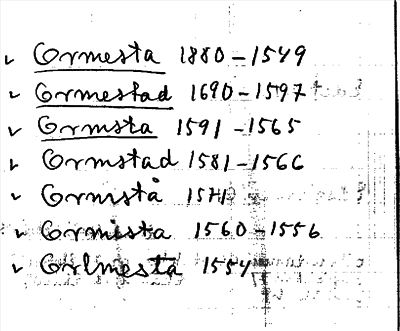 ✓ Ormesta 1880-1549
✓ Ormestad 1690-1597
✓ Ormsta 1591-1565
✓ Ormstad 1581-1566
✓ Ormstå 1571
✓ Ormista 1560-1556
✓ Orlmesta 1554